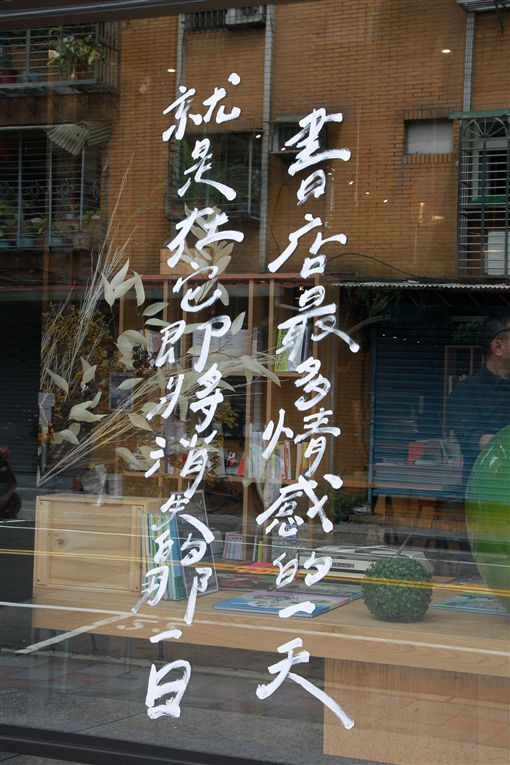 書店最多情感的一天
就是在它即將消失那一日